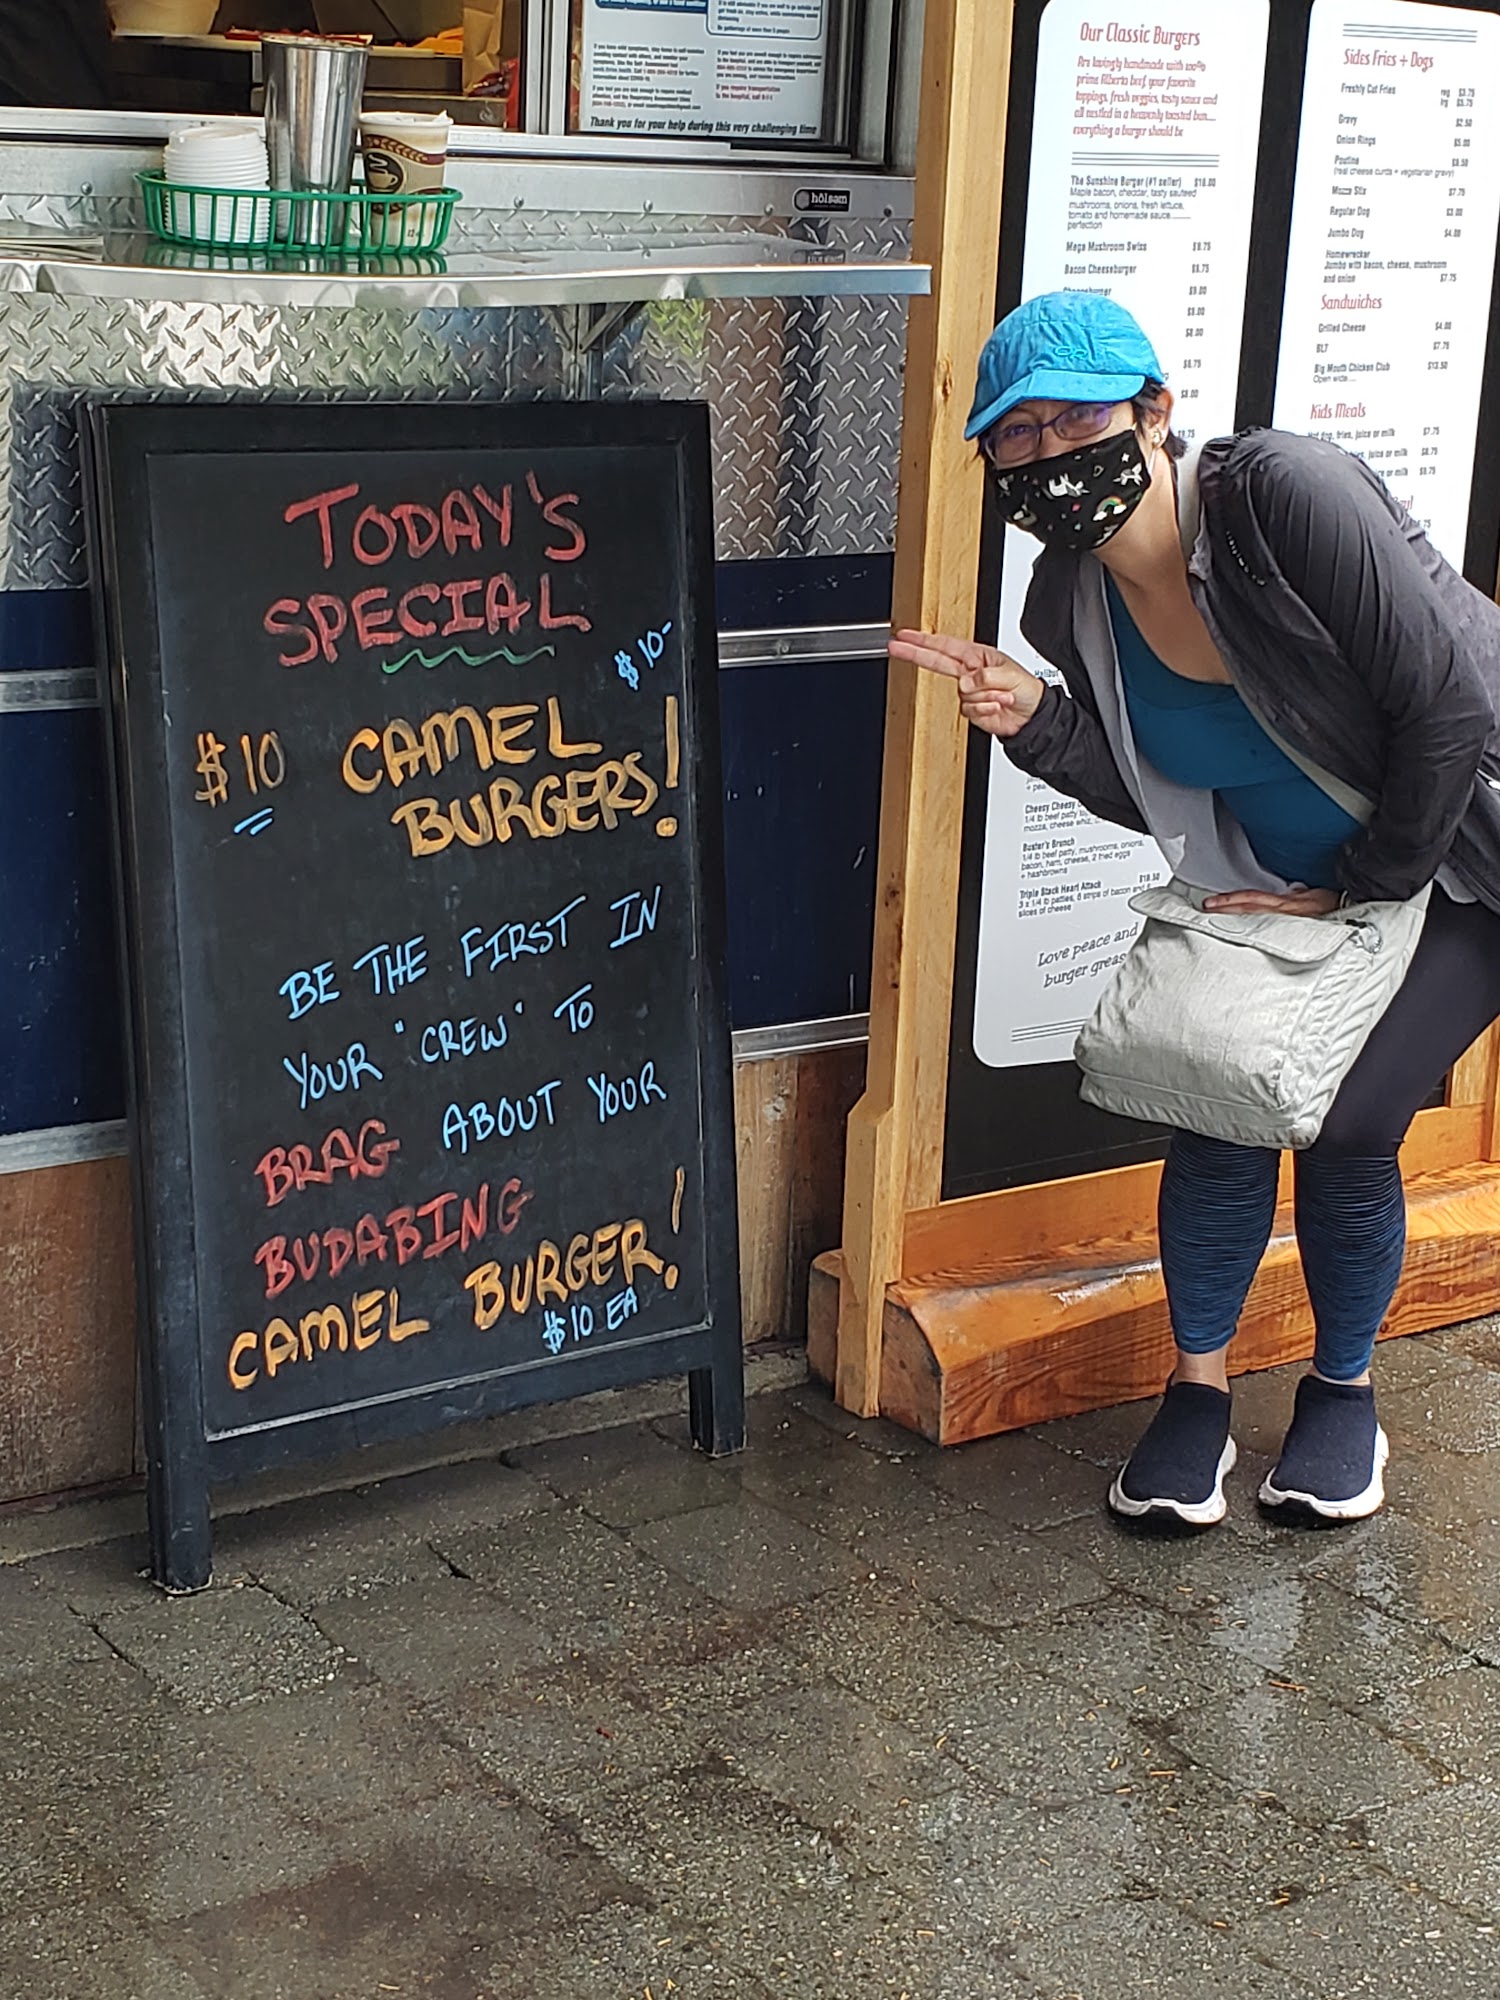 Thank you for your help during this very challenging time
hölsom
TODAY'S
SPECIAL
$10-
$10 CAMEL
BURGERS!
BE THE FIRST IN
YOUR "CREW" TO
BRAG ABOUT YOUR
BUDABING
CAMEL BURGER!
$10 EA
OR
Our Classic Burgers
Are lovingly handmade with 100%
prime Alberta beef, your favorite
toppings, fresh veggies, tasty sauce and
all nestled in a heavenly toasted bun.....
everything a burger should be
The Sunshine Burger (#1 seller) $10.00
Maple bacon, cheddar, tasty sauteed
mushrooms, onions, fresh lettuce,
tomato and homemade sauce.........
perfection
Mega Mushroom Swiss $9.75
Bacon Cheeseburger $9.75
Cheeseburger $9.00
$9.00
$8.00
Halibut
Cheesy Cheesy
1/4 lb beef patty
mozza, cheese whiz,
Buster's Brunch
1/4 lb beef patty, mushrooms, onions,
bacon, ham, cheese, 2 fried eggs
+ hashbrowns
Triple Stack Heart Attack $19.50
3 x 1/4 lb patties, 6 strips of bacon and
slices of cheese
Love peace and
burger grease
Sides Fries + Dogs
Freshly Cut Fries reg $3.75
lrg $5.75
Gravy $2.50
Onion Rings $5.00
Poutine $9.50
(real cheese curds + vegetarian gravy)
Mozza Stix $7.75
Regular Dog $3.00
Jumbo Dog $4.00
Homewrecker
Jumbo with bacon, cheese, mushroom
and onion $7.75
Sandwiches
Grilled Cheese $4.00
BLT $7.75
Big Mouth Chicken Club $13.50
Open wide....
Kids Meals
Hot dog, fries, juice or milk $7.75
fries, juice or milk $8.75
juice or milk $9.75